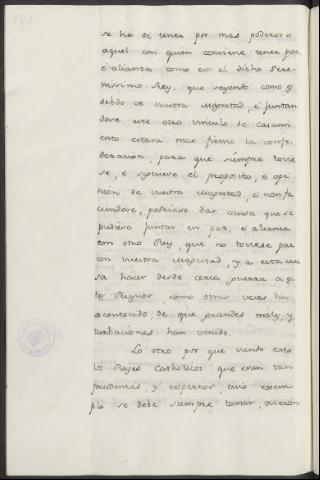 se ha de tener por mas poderoso
aquel con quien conviene tener paz
é alianza, como es el dicho Sere-
nissimo Rey, que seyendo como es
debdo de vuestra Magestad, é juntan
dose este otro vinculo de casami
ento estara mas firme la confe
deracion, para que siempre toviese
se, é siguiese el proposito, é opi
nion de vuestra Magestad, é no ha
ciendose, podriase dar causa que se
pudiese juntar en paz, é alianza
con otro Rey, que no toviese paz
con vuestra Magestad, y a esta cau
sa hacer desde cerca guerra a es
tos Reynos, como otras veces ha
acontecido, de que grandes males, y
turbaciones han venido.
Lo otro por que viendo esto
los Reyes Catholicos que eran tan
prudentes, y expertos, cuio exem-
plo se debe siempre tomar, ovieron